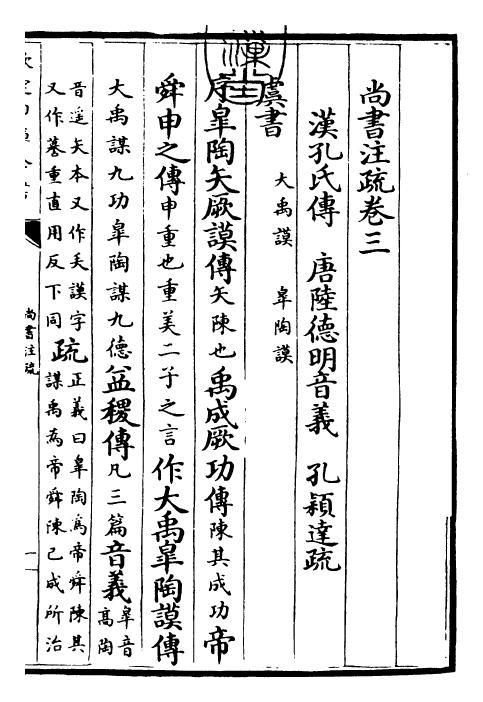 尚書注疏卷三
漢孔氏傳　唐陸德明音義　孔穎達疏
虞書
大禹謨　皋陶謨
序皋陶矢厥謨傳矢陳也禹成厥功傳陳其成功帝
舜申之傳申重也重美二子之言作大禹皋陶謨傳
大禹謀九功皋陶謀九德益稷傳凡三篇音義皋音
高陶
音遥矢本又作𡗗謨字
又作暮重直用反下同疏正義曰皋陶為帝舜陳其
謀禹為帝舜陳已成所治
尚書注疏
一